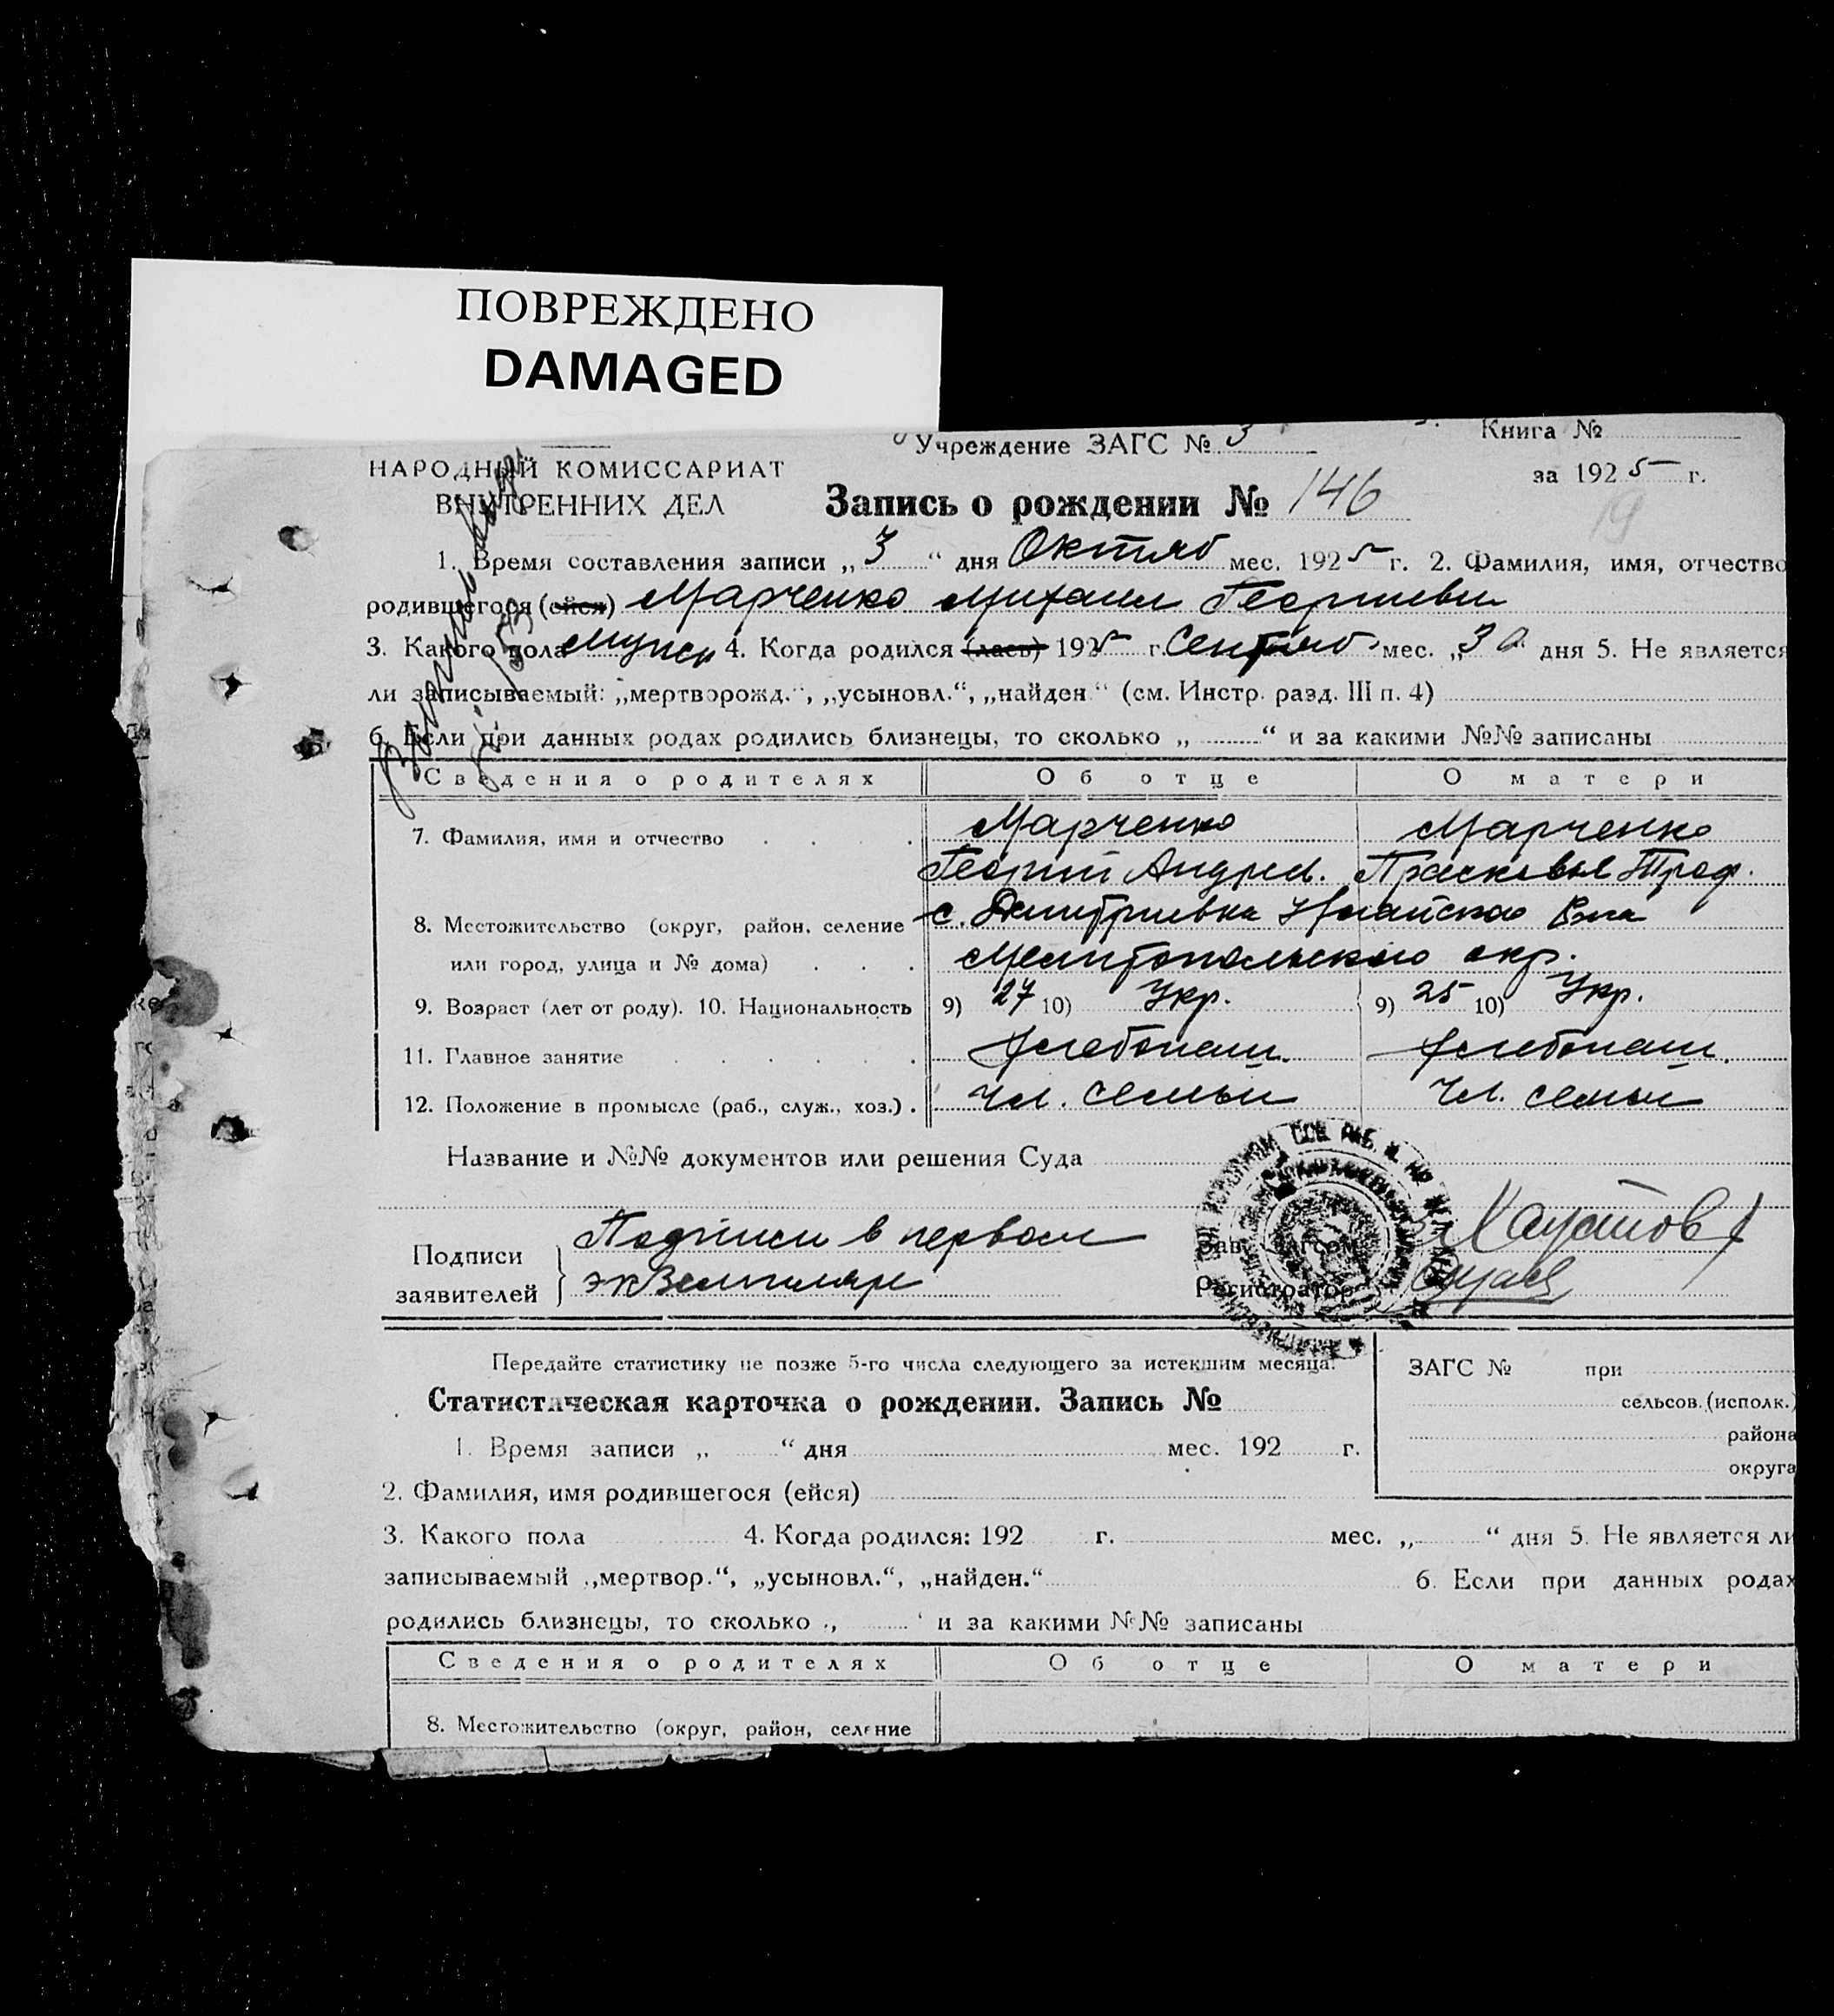 ПОВРЕЖДЕНО
DAMAGED
Учреждение ЗАГС № 3
Книга №
НАРОДНЫЙ КОМИССАРИАТ
ВНУТРЕННИХ ДЕЛ
за 1925 г.
Запись о рождении № 146
19
1. Время составления записи „3“ дня Октяб мес. 1925 г. 2. Фамилия, имя, отчество
родившегося (ейся) Марченко Михаил Георгиеви
3. Какого пола мужск 4. Когда родился (лась) 1925 г. Сентяб мес. „30 дня 5. Не является
ли записываемый: „мертворожд.“, „усыновл.“, „найден“ (см. Инстр. разд. III п. 4)
6. Если при данных родах родились близнецы, то сколько „ “ и за какими №№ записаны
Сведения о родителях Об отце О матери
7. Фамилия, имя и отчество Марченко Марченко
Георгий Андреев. Прасковья Троф.
8. Местожительство (округ, район, селение с. Дмитриевка
или город, улица и № дома) Мелитопольского окр.
9. Возраст (лет от роду). 10. Национальность 9) 27 10) Укр. 9) 25 10) Укр.
11. Главное занятие хлебопаш. хлебопаш.
12. Положение в промысле (раб., служ., хоз.) . чл. семьи чл. семьи
Название и №№ документов или решения Суда
Подписи Подписи в первом Зав. Загсом Хаустов
заявителей экземпляре Регистратор
Передайте статистику не позже 5-го числа следующего за истекшим месяца.
ЗАГС № при
Статистическая карточка о рождении. Запись №
сельсов. (исполк.)
района
1. Время записи „ “ дня мес. 192 г.
округа
2. Фамилия, имя родившегося (ейся)
3. Какого пола 4. Когда родился: 192 г. мес. „ “ дня 5. Не является ли
записываемый „мертвор.“, „усыновл.“, „найден.“ 6. Если при данных родах
родились близнецы, то сколько „ “ и за какими №№ записаны
Сведения о родителях Об отце О матери
8. Местожительство (округ, район, селение